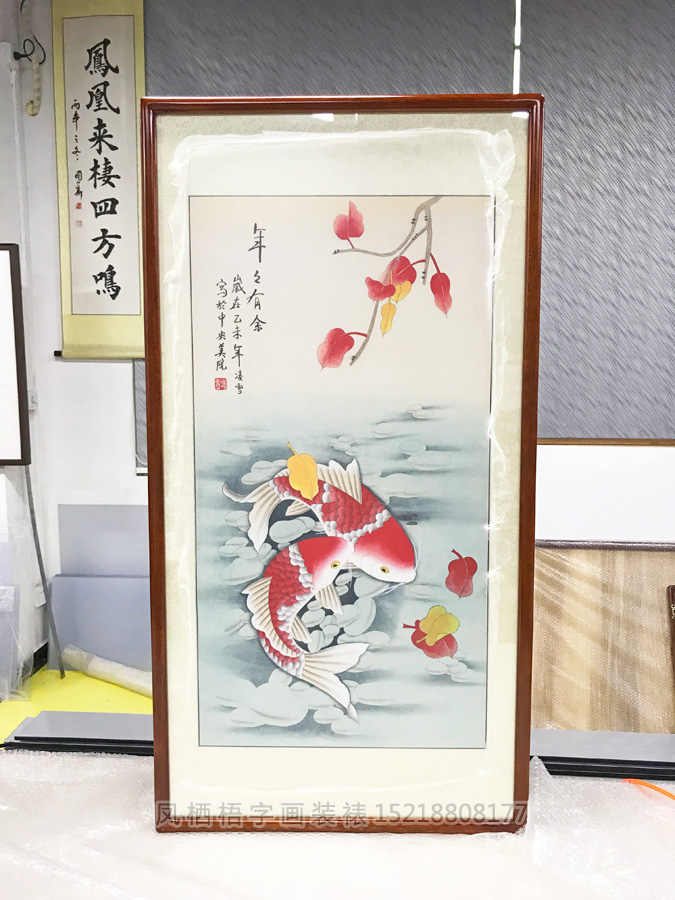 鳳凰来棲四方鳴
年々有余
歲在乙未年凌雪
寫於中央美院
凤栖梧字画装裱 15218808177